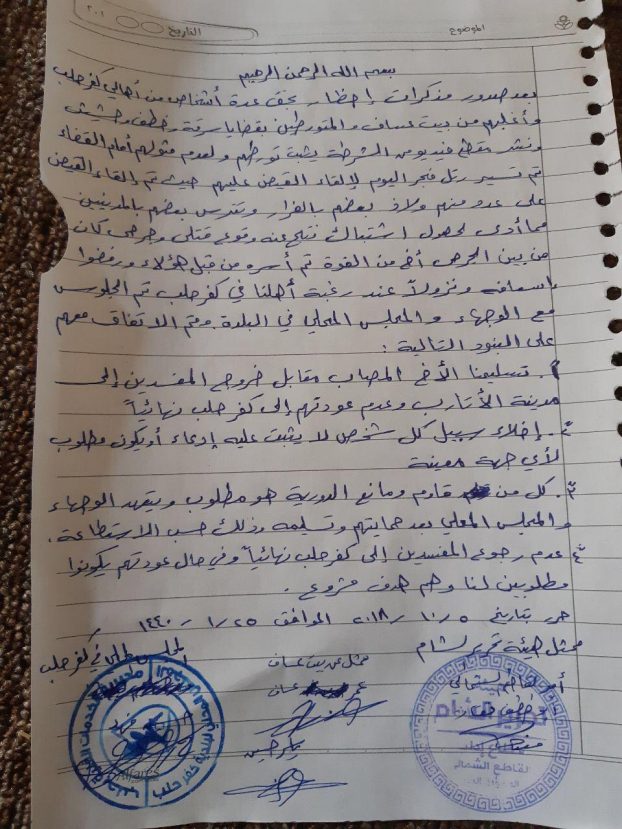 الموضوع
التاريخ
٢٠١
بسم الله الرحمن الرحيم
بعد صدور مذكرات إحظار بحق عدة أشخاص من أهالي كفرحلب
وأغلبهم من بيت عساف والمتورطين بقضايا سرقة وخطف وحشيش
ونشر مقطع فيديو من الشرطة يثبت تورطهم ولعدم مثولهم أمام القضاء
تم تسيير رتل فجر اليوم لإلقاء القبض عليهم حيث تم إلقاء القبض
على عدد منهم ولاذ بعضهم بالفرار وتترس بعضهم بالمدنيين
مما أدى لحصول اشتباك نتج عنه وقوع قتلى وجرحى كان
من بين الجرحى أخ من القوة تم أسره من قبل هؤلاء ورفضوا
إسعافه ونزولاً عند رغبة أهلنا في كفرحلب تم الجلوس
مع الوجهاء والمجلس المحلي في البلدة وتم الاتفاق معهم
على البنود التالية :
١. تسليمنا الأخ المصاب مقابل خروج المفسدين إلى
مدينة الأتارب وعدم عودتهم إلى كفرحلب نهائياً
٢. إخلاء سبيل كل شخص لا يثبت عليه إدعاء أو يكون مطلوب
لأي جهة معينة
٣. كل من قاوم ومانع الدورية هو مطلوب ويتعهد الوجهاء
والمجلس المحلي بعدم حمايتهم وتسليمه وذلك حسب الاستطاعة.
٤. عدم رجوع المفسدين إلى كفرحلب نهائياً وفي حال عودتهم يكونوا
مطلوبين لنا وهم هدف مشروع.
حرر بتاريخ ٥ / ١٠ / ٢٠١٨ الموافق ٢٥ / ١ / ١٤٤٠
ممثل هيئة تحرير الشام
ممثل عن بيت عساف
المجلس المحلي في كفرحلب
عساف
تحرير الشام
القاطع الشمالي
Alfares